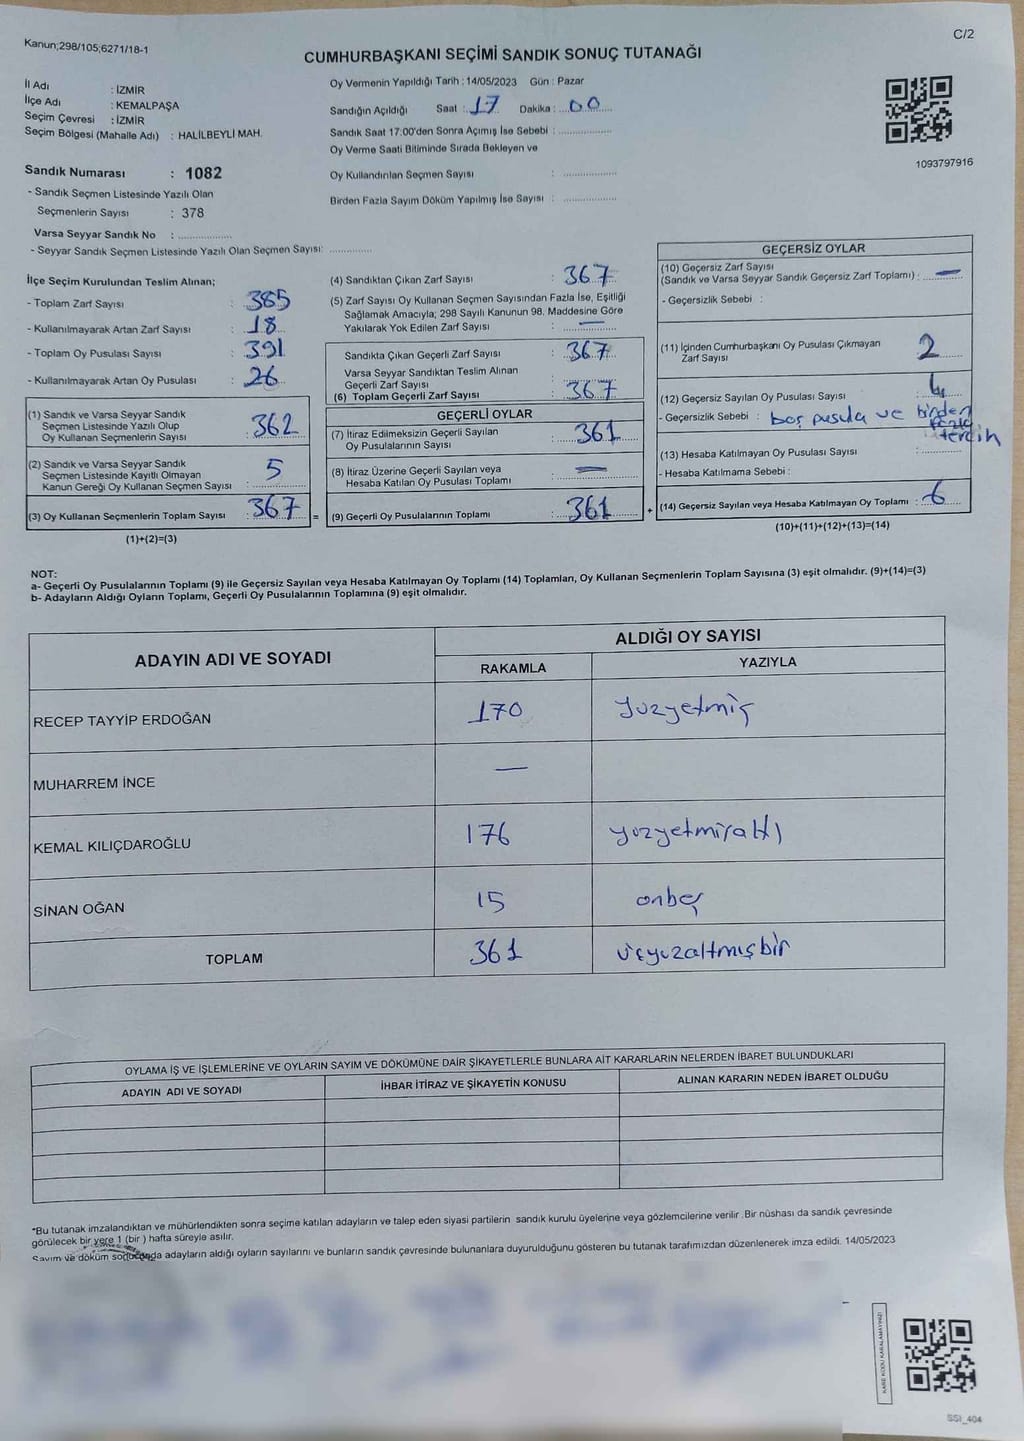 Kanun;298/105;6271/18-1
C/2
CUMHURBAŞKANI SEÇİMİ SANDIK SONUÇ TUTANAĞI
İl Adı : İZMİR
İlçe Adı : KEMALPAŞA
Seçim Çevresi : İZMİR
Seçim Bölgesi (Mahalle Adı) : HALİLBEYLİ MAH.
Sandık Numarası : 1082
- Sandık Seçmen Listesinde Yazılı Olan
Seçmenlerin Sayısı : 378
Varsa Seyyar Sandık No : ..............
- Seyyar Sandık Seçmen Listesinde Yazılı Olan Seçmen Sayısı: ............
Oy Vermenin Yapıldığı Tarih : 14/05/2023 Gün : Pazar
Sandığın Açıldığı Saat : 17 Dakika : 00
Sandık Saat 17:00'den Sonra Açımış İse Sebebi : ................
Oy Verme Saati Bitiminde Sırada Bekleyen ve
Oy Kullandırılan Seçmen Sayısı : ................
Birden Fazla Sayım Döküm Yapılmış İse Sayısı : ................
1093797916
İlçe Seçim Kurulundan Teslim Alınan;
- Toplam Zarf Sayısı : 385
- Kullanılmayarak Artan Zarf Sayısı : 18
- Toplam Oy Pusulası Sayısı : 391
- Kullanılmayarak Artan Oy Pusulası : 26
(1) Sandık ve Varsa Seyyar Sandık
Seçmen Listesinde Yazılı Olup
Oy Kullanan Seçmenlerin Sayısı : 362
(2) Sandık ve Varsa Seyyar Sandık
Seçmen Listesinde Kayıtlı Olmayan
Kanun Gereği Oy Kullanan Seçmen Sayısı : 5
(3) Oy Kullanan Seçmenlerin Toplam Sayısı : 367 =
(1)+(2)=(3)
(4) Sandıktan Çıkan Zarf Sayısı : 367
(5) Zarf Sayısı Oy Kullanan Seçmen Sayısından Fazla İse, Eşitliği
Sağlamak Amacıyla; 298 Sayılı Kanunun 98. Maddesine Göre
Yakılarak Yok Edilen Zarf Sayısı : —
Sandıkta Çıkan Geçerli Zarf Sayısı : 367
Varsa Seyyar Sandıktan Teslim Alınan
Geçerli Zarf Sayısı : ................
(6) Toplam Geçerli Zarf Sayısı : 367
GEÇERLİ OYLAR
(7) İtiraz Edilmeksizin Geçerli Sayılan
Oy Pusulalarının Sayısı : 361
(8) İtiraz Üzerine Geçerli Sayılan veya
Hesaba Katılan Oy Pusulası Toplamı : —
(9) Geçerli Oy Pusulalarının Toplamı : 361 +
GEÇERSİZ OYLAR
(10) Geçersiz Zarf Sayısı
(Sandık ve Varsa Seyyar Sandık Geçersiz Zarf Toplamı) : —
- Geçersizlik Sebebi :
(11) İçinden Cumhurbaşkanı Oy Pusulası Çıkmayan
Zarf Sayısı : 2
(12) Geçersiz Sayılan Oy Pusulası Sayısı : 4
- Geçersizlik Sebebi : boş pusula ve birden
fazla
tercih
(13) Hesaba Katılmayan Oy Pusulası Sayısı : ............
- Hesaba Katılmama Sebebi :
(14) Geçersiz Sayılan veya Hesaba Katılmayan Oy Toplamı : 6
(10)+(11)+(12)+(13)=(14)
NOT:
a- Geçerli Oy Pusulalarının Toplamı (9) ile Geçersiz Sayılan veya Hesaba Katılmayan Oy Toplamı (14) Toplamları, Oy Kullanan Seçmenlerin Toplam Sayısına (3) eşit olmalıdır. (9)+(14)=(3)
b- Adayların Aldığı Oyların Toplamı, Geçerli Oy Pusulalarının Toplamına (9) eşit olmalıdır.
ADAYIN ADI VE SOYADI
ALDIĞI OY SAYISI
RAKAMLA YAZIYLA
RECEP TAYYİP ERDOĞAN 170 yüzyetmiş
MUHARREM İNCE —
KEMAL KILIÇDAROĞLU 176 yüzyetmişaltı
SİNAN OĞAN 15 onbeş
TOPLAM 361 üçyüzaltmışbir
OYLAMA İŞ VE İŞLEMLERİNE VE OYLARIN SAYIM VE DÖKÜMÜNE DAİR ŞİKAYETLERLE BUNLARA AİT KARARLARIN NELERDEN İBARET BULUNDUKLARI
ADAYIN ADI VE SOYADI İHBAR İTİRAZ VE ŞİKAYETİN KONUSU ALINAN KARARIN NEDEN İBARET OLDUĞU
*Bu tutanak imzalandıktan ve mühürlendikten sonra seçime katılan adayların ve talep eden siyasi partilerin sandık kurulu üyelerine veya gözlemcilerine verilir .Bir nüshası da sandık çevresinde
görülecek bir yere 1 (bir ) hafta süreyle asılır.
Sayım ve döküm sonucunda adayların aldığı oyların sayılarını ve bunların sandık çevresinde bulunanlara duyurulduğunu gösteren bu tutanak tarafımızdan düzenlenerek imza edildi. 14/05/2023
KARE KODU KARALAMAYINIZ!
SSI_404